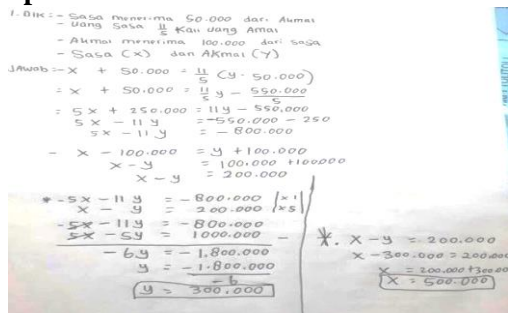 1. DIK: - Sasa menerima 50.000 dari Akmal
- uang Sasa 11/5 Kali uang Amal
- Akmal menerima 100.000 dari Sasa
- Sasa (x) dan Akmal (y)
Jawab: - x + 50.000 = 11/5 (y - 50.000)
= x + 50.000 = 11/5 y - 550.000/5
= 5x + 250.000 = 11y - 550.000
5x - 11y = -550.000 - 250
5x - 11y = -800.000
- x - 100.000 = y + 100.000
x - y = 100.000 + 100000
x - y = 200.000
* - 5x - 11y = -800.000 | x1
x - y = 200.000 | x5
- 5x - 11y = -800.000
5x - 5y = 1000.000 -
- 6y = - 1.800.000
y = - 1.800.000
- 6
y = 300.000
*. x - y = 200.000
x - 300.000 = 200.000
x = 200.000 + 300.000
x = 500.000